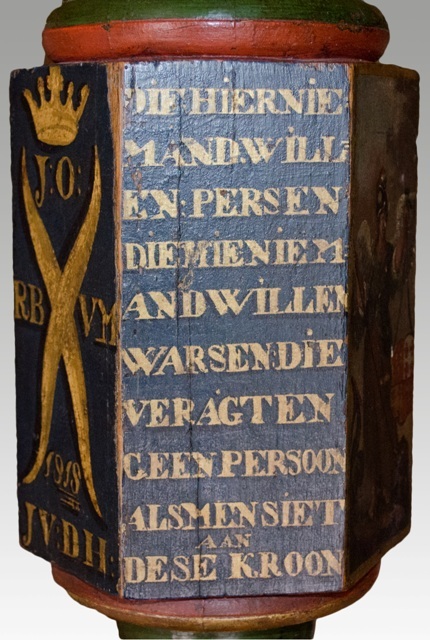 J:O:
RB VM
1918
JV:DH
DIE HIER NIE
MAND.WILL
EN:PERSEN
DIE HIE NIEM
ANDWILLEN
WARSEN:DIE
VERAGTEN
GEEN PERSOON
ALSMENSIET
AAN
DESE KROON